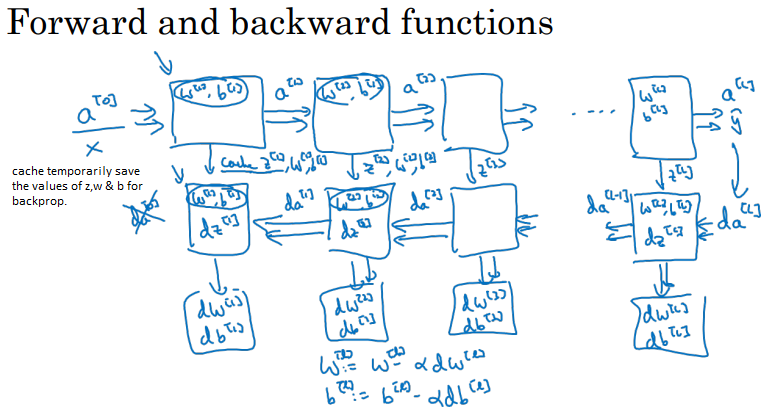 Forward and backward functions
a^[0] w^[1], b^[1] a^[1] w^[2], b^[2] a^[2] .... w^[L] b^[L] a^[L]
x ŷ
cache z^[1], w^[1], b^[1] z^[2], w^[2], b^[2] z^[3] z^[L]
cache temporarily save
the values of z,w & b for
backprop.
da^[0] w^[1], b^[1] da^[1] w^[2], b^[2] da^[2] da^[L-1] w^[L], b^[L] da^[L]
dz^[1] dz^[2] dz^[L]
dw^[1] dw^[2] dw^[3] dw^[L]
db^[1] db^[2] db^[3] db^[L]
w^[l] := w^[l] - αdw^[l]
b^[l] := b^[l] - αdb^[l]